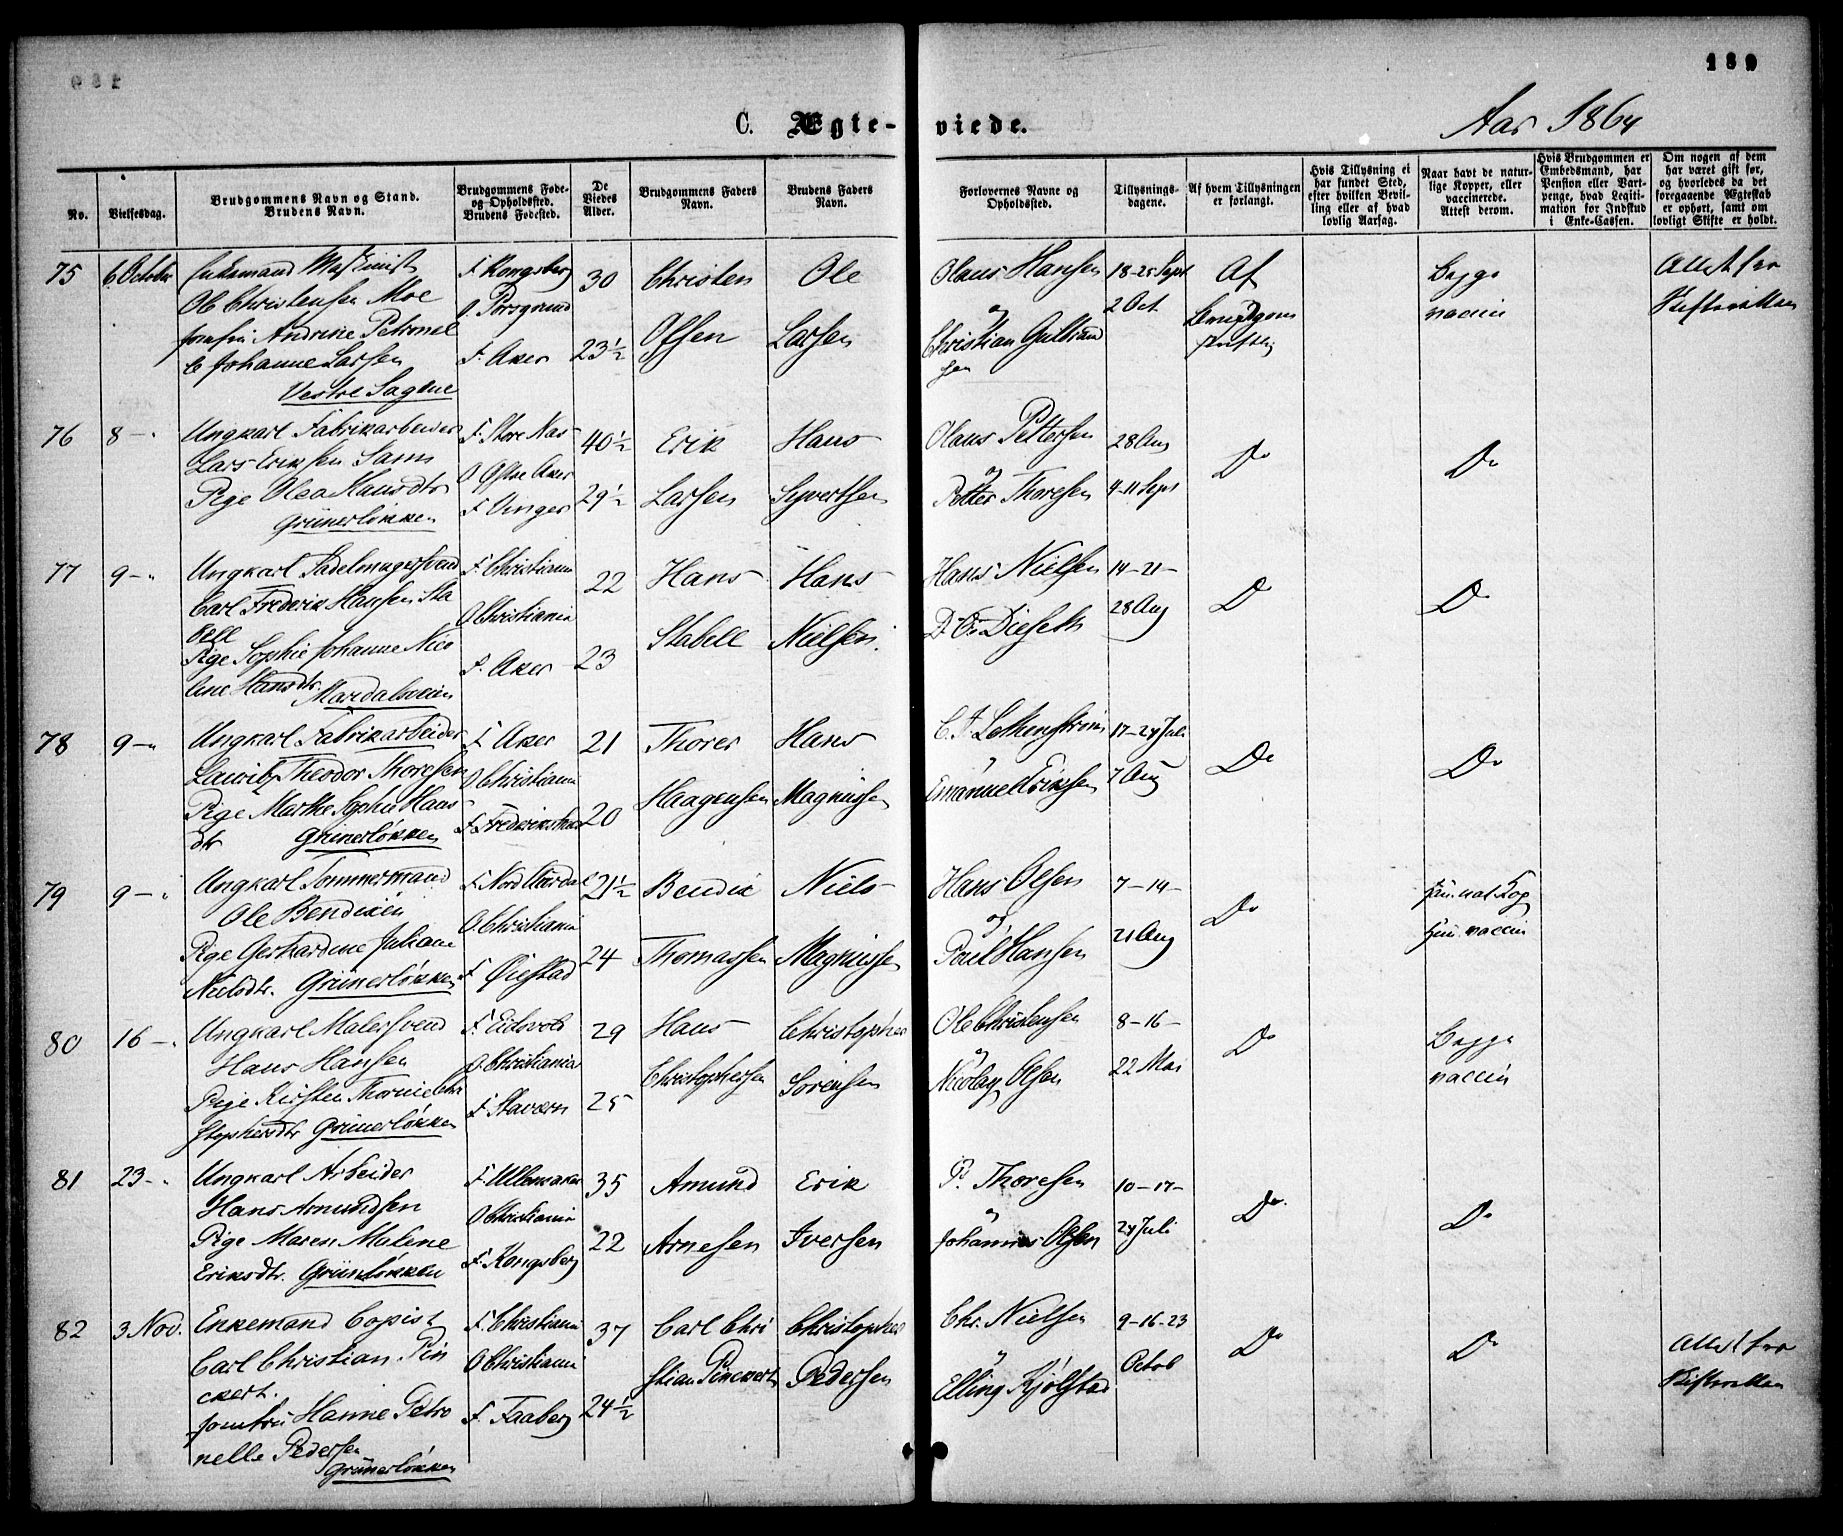 189
C. Ægteviede.
Aar 1864
No.
Vielsesdag.
Brudgommens Navn og Stand.
Brudens Navn.
Brudgommens Føde-
og Opholdssted.
Brudens Fødested.
De
Viedes
Alder.
Brudgommens Faders
Navn.
Brudens Faders
Navn.
Forlovernes Navne og
Opholdssted.
Tillysnings-
dagene.
Af hvem Tillysningen
er forlangt.
Hvis Tillysning ei
har fundet Sted,
efter hvilken Bevil-
ling eller af hvad
lovlig Aarsag.
Naar havt de natur-
lige Kopper, eller
vaccinerede.
Attest derom.
Hvis Brudgommen er
Embedsmand, har
Pension eller Vart-
penge, hvad Legiti-
mation for Indskud
i Enke-Cassen.
Om nogen af dem
har været gift før,
og hvorledes da det
foregaaende Ægteskab
er ophørt, samt om
lovligt Skifte er holdt.
75 6 October
Enkemand Maskinist
Ole Christensen Moe
Jomfru Andrine Petronel
le Johanne Larsen
Vestre Sagene
F. Kongsberg
O Porsgrund
F. Aker
30
23½
Christen
Olsen
Ole
Larsen
Olaus Hansen
og
Christian Gulbrand
sen
18-25 Sept
2 Oct
Af
Brudgom
Begge
vaccin
Attest fra
Skifteretten
76 8 - "
Ungkarl Fabrikarbeider
Lars Eriksen Sann
Pige Olea Hansdtr
Grünerløkken
F. Store Næs
O Østre Aker
F. Vinger
40½
29½
Erik
Larsen
Hans
Syvertsen
Olaus Pettersen
og
Petter Thoresen
28 Aug
4-11 Sept
Do
Do
77 9 - "
Ungkarl Sadelmagersvend
Carl Frederik Hansen Sta
bell
Pige Sophie Johanne Nico
line Hansdtr. Maridalsveien
F. Christiania
O Christiania
F. Aker
22
23
Hans
Stabell
Hans
Nielsen
Hans Nielsen
D. O. Dieseth
14-21-
28 Aug
Do
Do
78 9 - "
Ungkarl Fabrikarbeider
Lauritz Theodor Thoresen
Pige Marthe Sophie Hans
dtr Grünerløkken
F. Aker
O Christiania
F. Frederikshald
21
20
Thores
Haagensen
Hans
Magnussen
Emanuel Eriksen
17-24 Juli
7 Aug
Do
Do
79 9 - "
Ungkarl Tømmermand
Ole Bendixen
Pige Gerhardine Juliane
Nielsdtr. Grünerløkken
F. Nord Aurdal
O. Christiania
F. Øiestad
21½
24
Bendix
Thomassen
Niels
Magnussen
Hans Olsen
og
Poul Hansen
7-14-
21 Aug
Do
Han nat. Kop
Hun vaccin
80 16 - "
Ungkarl Malersvend
Hans Hansen
Pige Kirsten Thorine Chri
stophersdtr Grünerløkken
F. Eidsvold
O. Christiania
F. Stavern
29
25
Hans
Christophersen
Christopher
Sørensen
Ole Christensen
og
Nicolay Olsen
8-16-
22 Mai
Do
Begge
vaccin
81 23 - "
Ungkarl Arbeider
Hans Amundsen
Pige Maren Malene
Eriksdtr. Grünløkken
F. Ullensaker
O Christiania
F. Kongsberg
35
22
Amund
Arnesen
Erik
Iversen
P. Thoresen
og
Johannes Olsen
10-17-
24 Juli
Do
Do
82 3 Nov.
Enkemand Copist
Carl Christian Pin
ckert.
Jomfru Hanne Petro
nelle Pedersen
Grünerløkken
F. Christiania
O Christiania
F. Faaberg
37
24½
Carl Chri
stian Pinckert
Christopher
Pedersen
Chr. Nielsen
Elling Kjølstad
9-16-23
Octob
Do
Do
Attest fra
Skifteretten